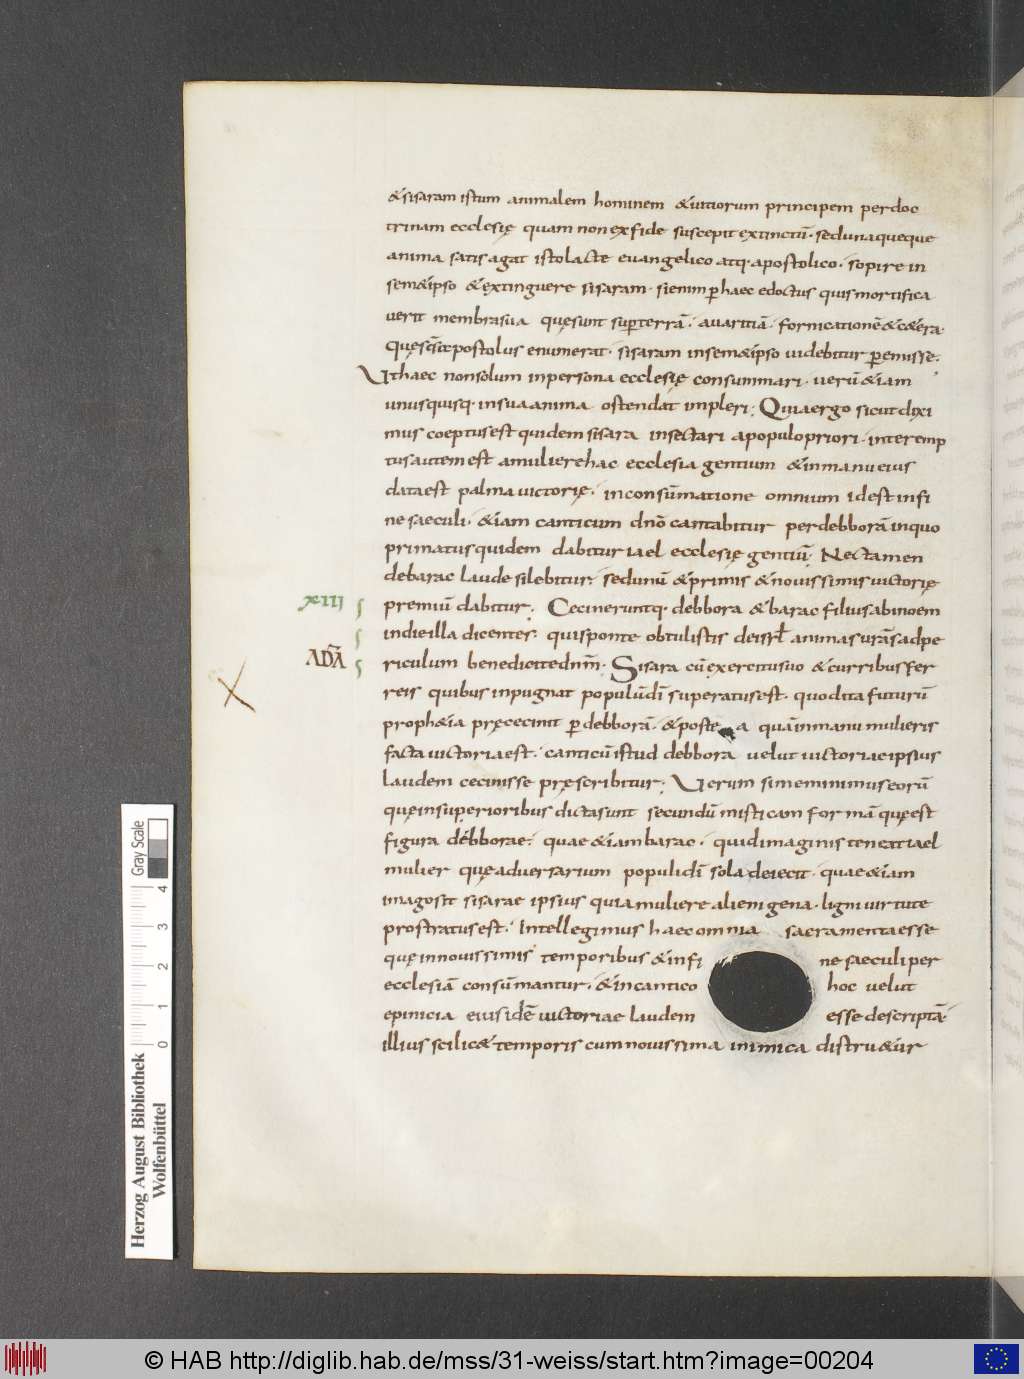 &sisaram istum animalem hominem &uitiorum principem perdoc
trinam ecclesię quam non exfide suscepit extinctū· sedunaqueque
anima satis agat isto lacte euangelico atq· apostolico· sopire in
sem&ipso &extinguere sisaram· sienim ꝑhaec edoctus quis mortifica
uerit membrasua quęsunt suꝑterrā· auaritiā· fornicationē&c&era·
quęsc̄itapostolus enumerat· sisaram insem&ipso uidebitur ꝑemisse·
Uthaec nonsolum inpersona ecclesię consummari· uerū&iam
unusquisq· insua anima ostendat impleri; Quia ergo sicut dixi
mus coeptus est quidem sisara insectari apopulo priori· interemp
tus autem est amuliere hac ecclesia gentium &inmanu eius
data est palma uictorię· inconsūmatione omnium idest infi
ne saeculi· &iam canticum dnō cantabitur perdebborā inquo
primatus quidem dabitur iael ecclesię gentiū; Nectamen
debarac laude silebitur· sedunū &primis &nouissimis uictorię
xiii premiū dabitur; Cecineruntq· debbora &barac filius abinoem
indie illa dicentes· qui sponte obtulistis deisrl̄ animas urās adpe
ADM̄ riculum benedicite dnm̄· Sisara cū exercitu suo &curribus fer
reis quibus inpugnat populūdī superatus est· quod ita futurū
proph&ia pręcecinit ꝑdebborā· &postea quā inmanu mulieris
facta uictoria est· canticū istud debbora uelut uictoriae ipsius
laudem cecinisse pręscribitur; Uerum si meminimus eorū
quę insuperioribus dicta sunt secundū misticam formā quę est
figura debborae· quae &iam barac· quid imaginis teneat iael
mulier quę aduersarium populidī sola deiecit· quae &iam
imago sit sisarae ipsius quia muliere alienigena· ligni uirtute
prostratus est· Intellegimus haec omnia sacramenta esse
quę innouissimis temporibus &infi ne saeculi per
ecclesiā consūmantur· &incantico hoc uelut
epinicia eiusdē uictoriae laudem esse descriptā·
illius scilic& temporis cum nouissima inimica distru&ur
Herzog August Bibliothek
Wolfenbüttel
Gray Scale
0 1 2 3 4
© HAB http://diglib.hab.de/mss/31-weiss/start.htm?image=00204